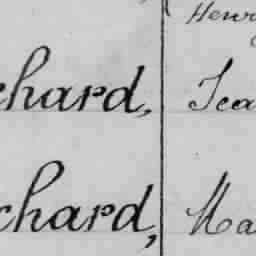 Henry
chard, Jea
chard, Ma